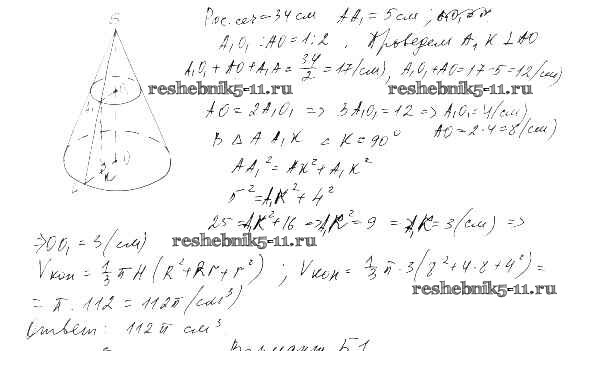 Pос. сеч = 34 см AA₁ = 5 см ;
A₁O₁ : AO = 1:2 , Проведем A₁K ⊥ AO
A₁O₁ + AO + A₁A = 34/2 = 17(см), A₁O₁ + AO = 17 - 5 = 12(см)
reshebnik5-11.ru reshebnik5-11.ru
AO = 2A₁O₁ => 3A₁O₁ = 12 => A₁O₁ = 4(см)
AO = 2·4 = 8(см)
В Δ A A₁K ∠K = 90°
AA₁² = AK² + A₁K²
5² = A₁K² + 4²
25 = A₁K² + 16 => A₁K² = 9 => A₁K = 3(см) =>
=> OO₁ = 3(см)
reshebnik5-11.ru
Vкон = 1/3 πH(R² + Rr + r²) ; Vкон = 1/3 π·3(8² + 4·8 + 4²) =
reshebnik5-11.ru
= π·112 = 112π(см³)
Ответ: 112π см³.
Вариант Б1